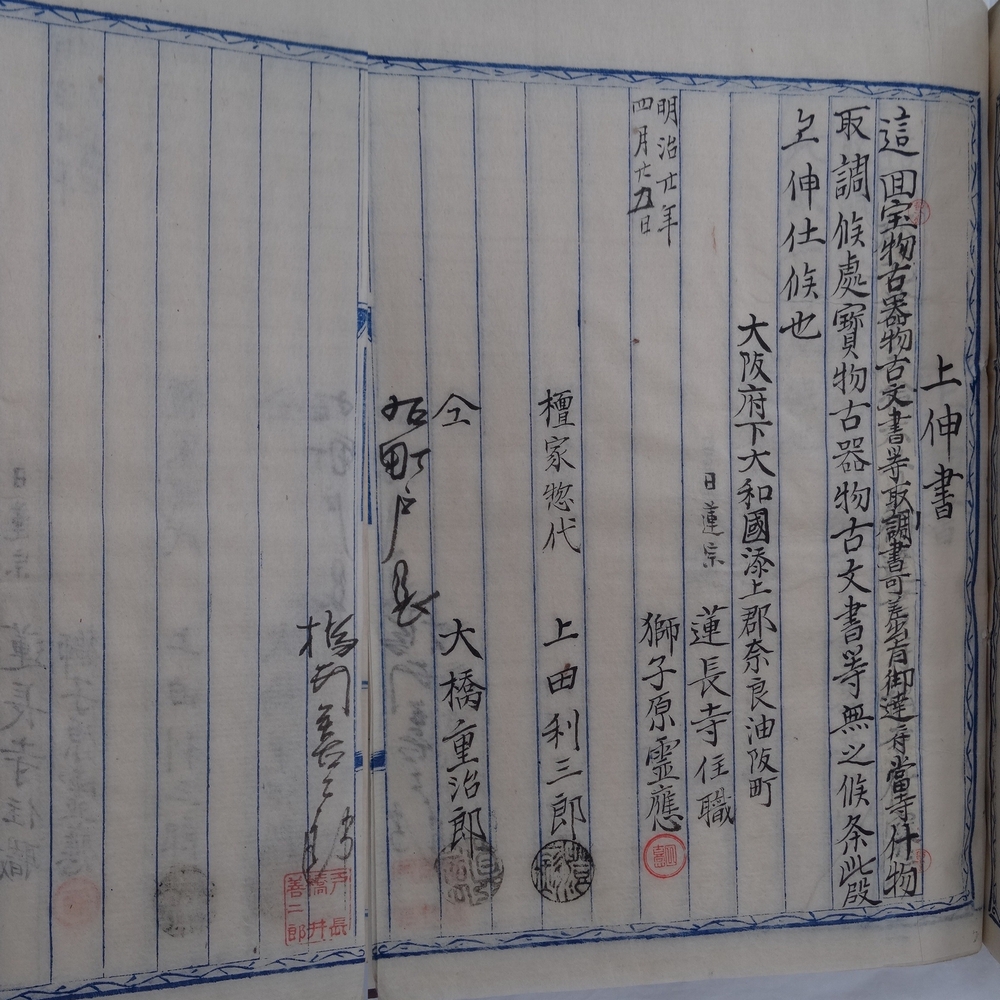 上伸書
這回宝物古器物古文書等取調書可差出旨御達ニ付當寺什物
取調候處寳物古器物古文書等無之候条此段
上伸仕候也
大阪府下大和國添上郡奈良油阪町
日蓮宗 蓮長寺住職
明治廿年
四月廿九日
獅子原霊應
檀家惣代 上田利三郎
仝 大橋重治郎
右町戸長
橋井善二郎
戸長
橋井
善二郎